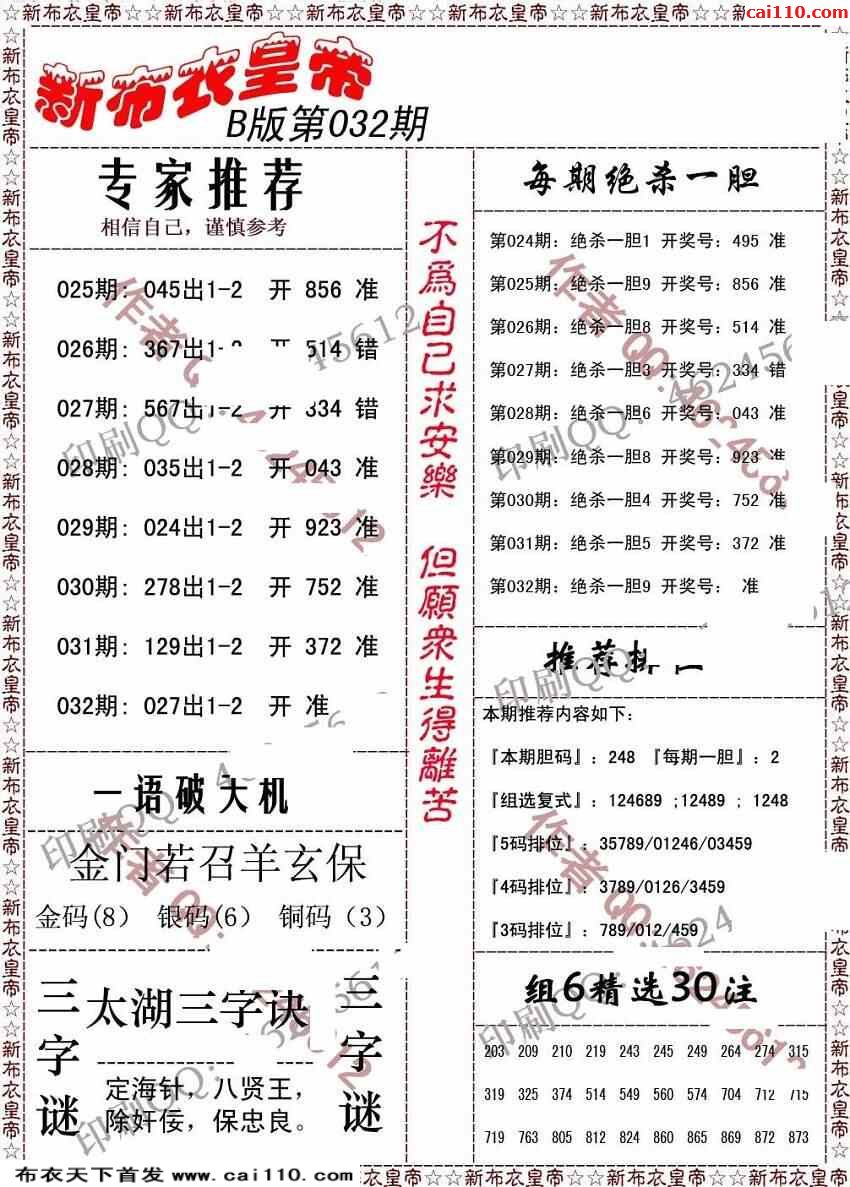 ☆☆新布衣皇帝☆☆新布衣皇帝☆☆新布衣皇帝☆☆新布衣皇帝☆☆新布衣皇帝☆☆新
cai110.com
新布衣皇帝
B版第032期
专家推荐
相信自己，谨慎参考
025期: 045出1-2 开 856 准
026期: 367出1-2 开 514 错
027期: 567出1-2 开 334 错
028期: 035出1-2 开 043 准
029期: 024出1-2 开 923 准
030期: 278出1-2 开 752 准
031期: 129出1-2 开 372 准
032期: 027出1-2 开 准
一语破天机
金门若召羊玄保
金码(8) 银码(6) 铜码（3）
三字谜
太湖三字诀
定海针，八贤王，
除奸佞，保忠良。
三字谜
不為自己求安樂 但願衆生得離苦
每期绝杀一胆
第024期: 绝杀一胆1 开奖号: 495 准
第025期: 绝杀一胆9 开奖号: 856 准
第026期: 绝杀一胆8 开奖号: 514 准
第027期: 绝杀一胆3 开奖号: 334 错
第028期: 绝杀一胆6 开奖号: 043 准
第029期: 绝杀一胆8 开奖号: 923 准
第030期: 绝杀一胆4 开奖号: 752 准
第031期: 绝杀一胆5 开奖号: 372 准
第032期: 绝杀一胆9 开奖号: 准
推荐
本期推荐内容如下:
『本期胆码』: 248 『每期一胆』: 2
『组选复式』: 124689 ;12489 ; 1248
『5码排位』: 35789/01246/03459
『4码排位』: 3789/0126/3459
『3码排位』: 789/012/459
组6精选30注
203 209 210 219 243 245 249 264 274 315
319 325 374 514 549 560 574 704 712 715
719 763 805 812 824 860 865 869 872 873
布衣天下首发 www.cai110.com
衣皇帝☆☆新布衣皇帝☆☆新布衣皇帝☆☆新布衣皇帝☆☆